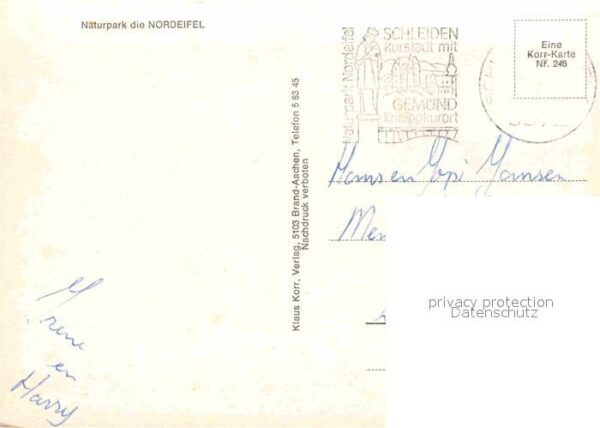 Näturpark die NORDEIFEL
Irene
en
Harry
Klaus Korr, Verlag, 5103 Brand-Aachen, Telefon 5 63 45
Nachdruck verboten
Naturpark Nordeifel
SCHLEIDEN
Kurstadt mit
GEMÜND
Kneippkurort
Eine
Korr-Karte
Nr. 248
Hansen Hansen
privacy protection
Datenschutz